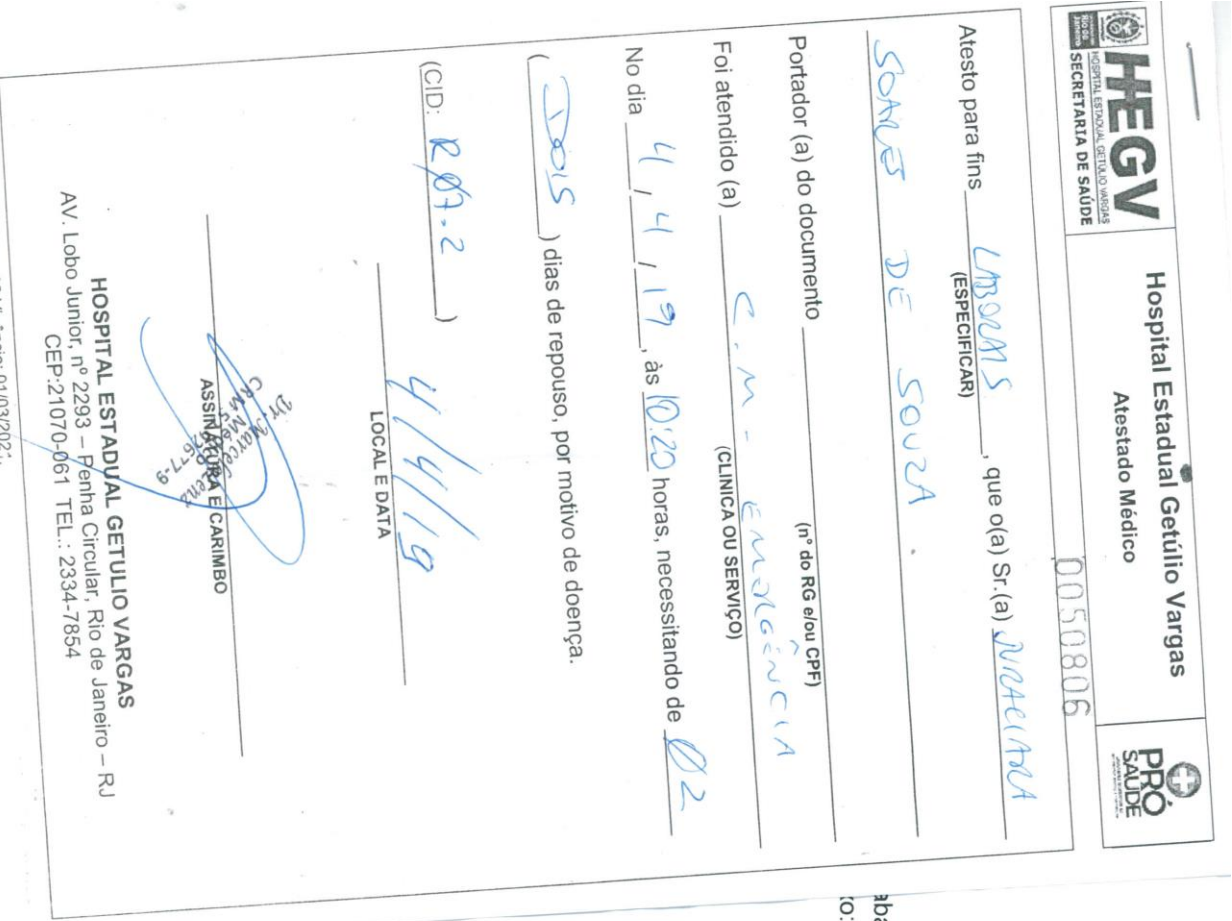 HEGV
HOSPITAL ESTADUAL GETULIO VARGAS
Rio de Janeiro
SECRETARIA DE SAÚDE
Hospital Estadual Getúlio Vargas
Atestado Médico
PRÓ
SAUDE
0050806
Atesto para fins LABORAIS, que o(a) Sr.(a)
(ESPECIFICAR)
SOARES DE SOUZA
Portador (a) do documento
(nº do RG e/ou CPF)
Foi atendido (a) C.M - EMERGÊNCIA
(CLINICA OU SERVIÇO)
No dia 4/4/19, às 10:20 horas, necessitando de 02
(DOIS) dias de repouso, por motivo de doença.
(CID: R07.2)
4/4/19
LOCAL E DATA
Dr. Marcel
ASSINATURA E CARIMBO
HOSPITAL ESTADUAL GETULIO VARGAS
AV. Lobo Junior, nº 2293 – Penha Circular, Rio de Janeiro – RJ
CEP:21070-061 TEL.: 2334-7854
01/03/2021.